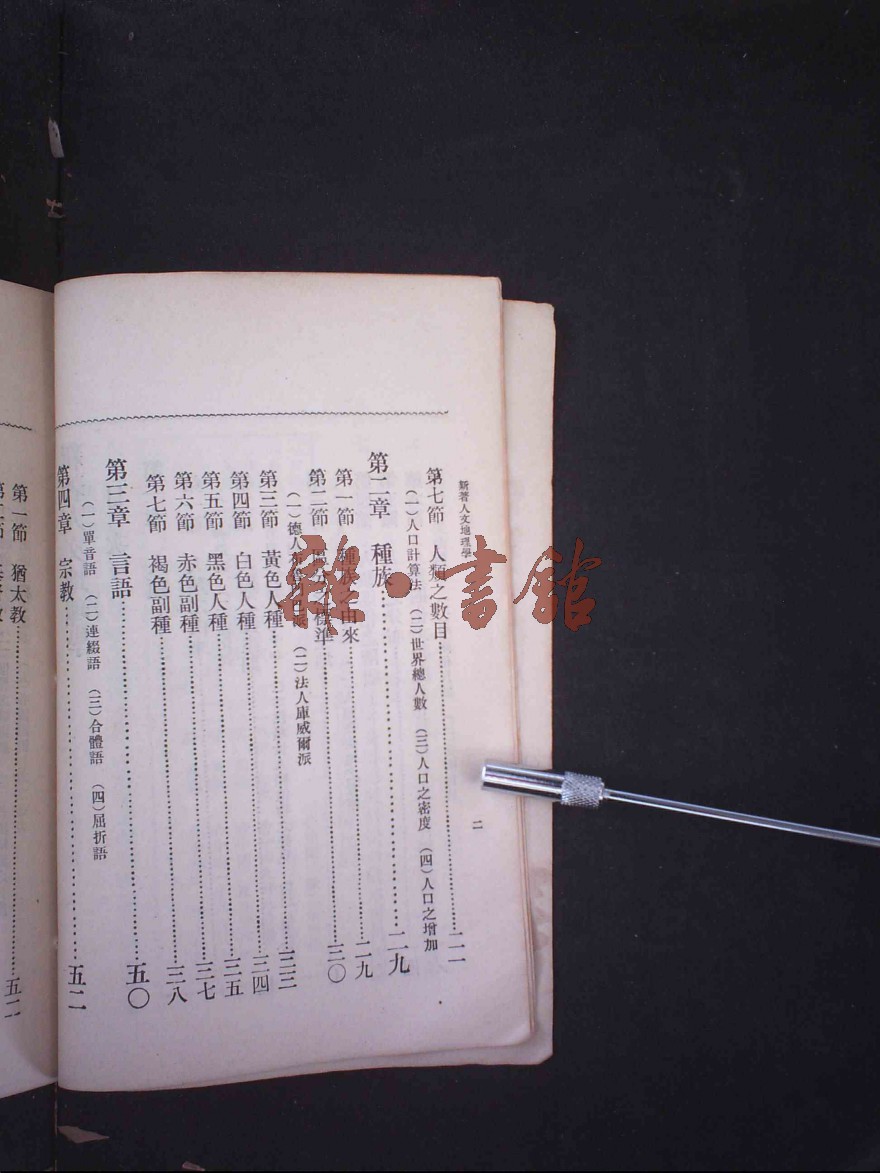 新著人文地理學
二
第七節 人類之數目 二一
(一)人口計算法 (二)世界總人數 (三)人口之密度 (四)人口之增加
第二章 種族 二九
第一節 由來 二九
第二節 標準 三〇
(一)德人 (二)法人庫威爾派
第三節 黃色人種 三三
第四節 白色人種 三四
第五節 黑色人種 三五
第六節 赤色副種 三七
第七節 褐色副種 三八
第三章 言語 五〇
(一)單音語 (二)連綴語 (三)合體語 (四)屈折語
第四章 宗教 五二
第一節 猶太教 五二
雜·書館